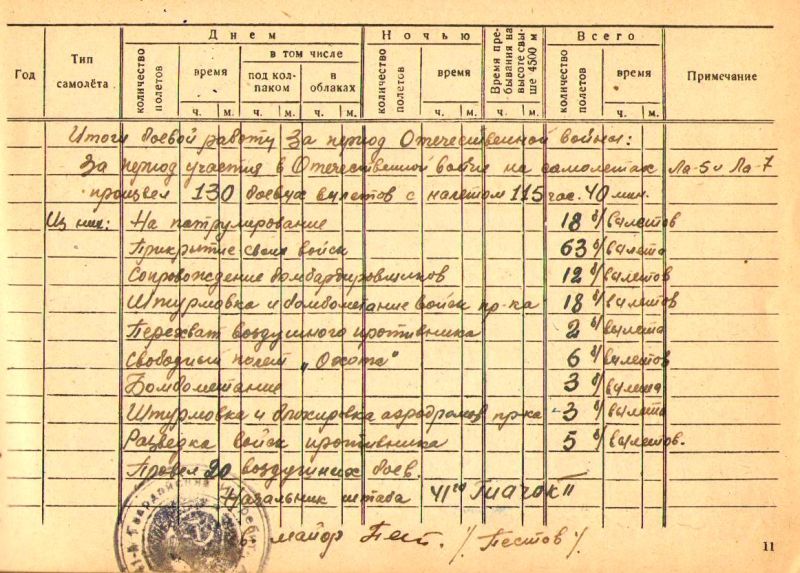 Год
Тип самолёта
Днем
количество полетов
время
ч. м.
в том числе
под колпаком
ч. м.
в облаках
ч. м.
Ночью
количество полетов
время
ч. м.
Время пребывания на высоте свыше 4500 м
Всего
количество полетов
время
ч. м.
Примечание
Итоги боевой работы За период Отечественной войны:
За период участия в Отечественной войне на самолетах Ла-5 и Ла-7
произвел 130 боевых вылетов с налетом 115 час. 40 мин.
Из них: На патрулирование 18 б/вылетов
Прикрытие своих войск 63 б/вылета
Сопровождение бомбардировщиков 12 б/вылетов
Штурмовка и бомбометание войск пр-ка 18 б/вылетов
Перехват воздушного противника 2 б/вылета
Свободный полет "Охота" 6 б/вылетов
Бомбометание 3 б/вылета
Штурмовка и блокировка аэродромов пр-ка - 3 б/вылета
Разведка войск противника 5 б/вылетов.
Провел 20 воздушных боев.
Начальник штаба 41 ГИАЧОК"
майор /Пестов/
11